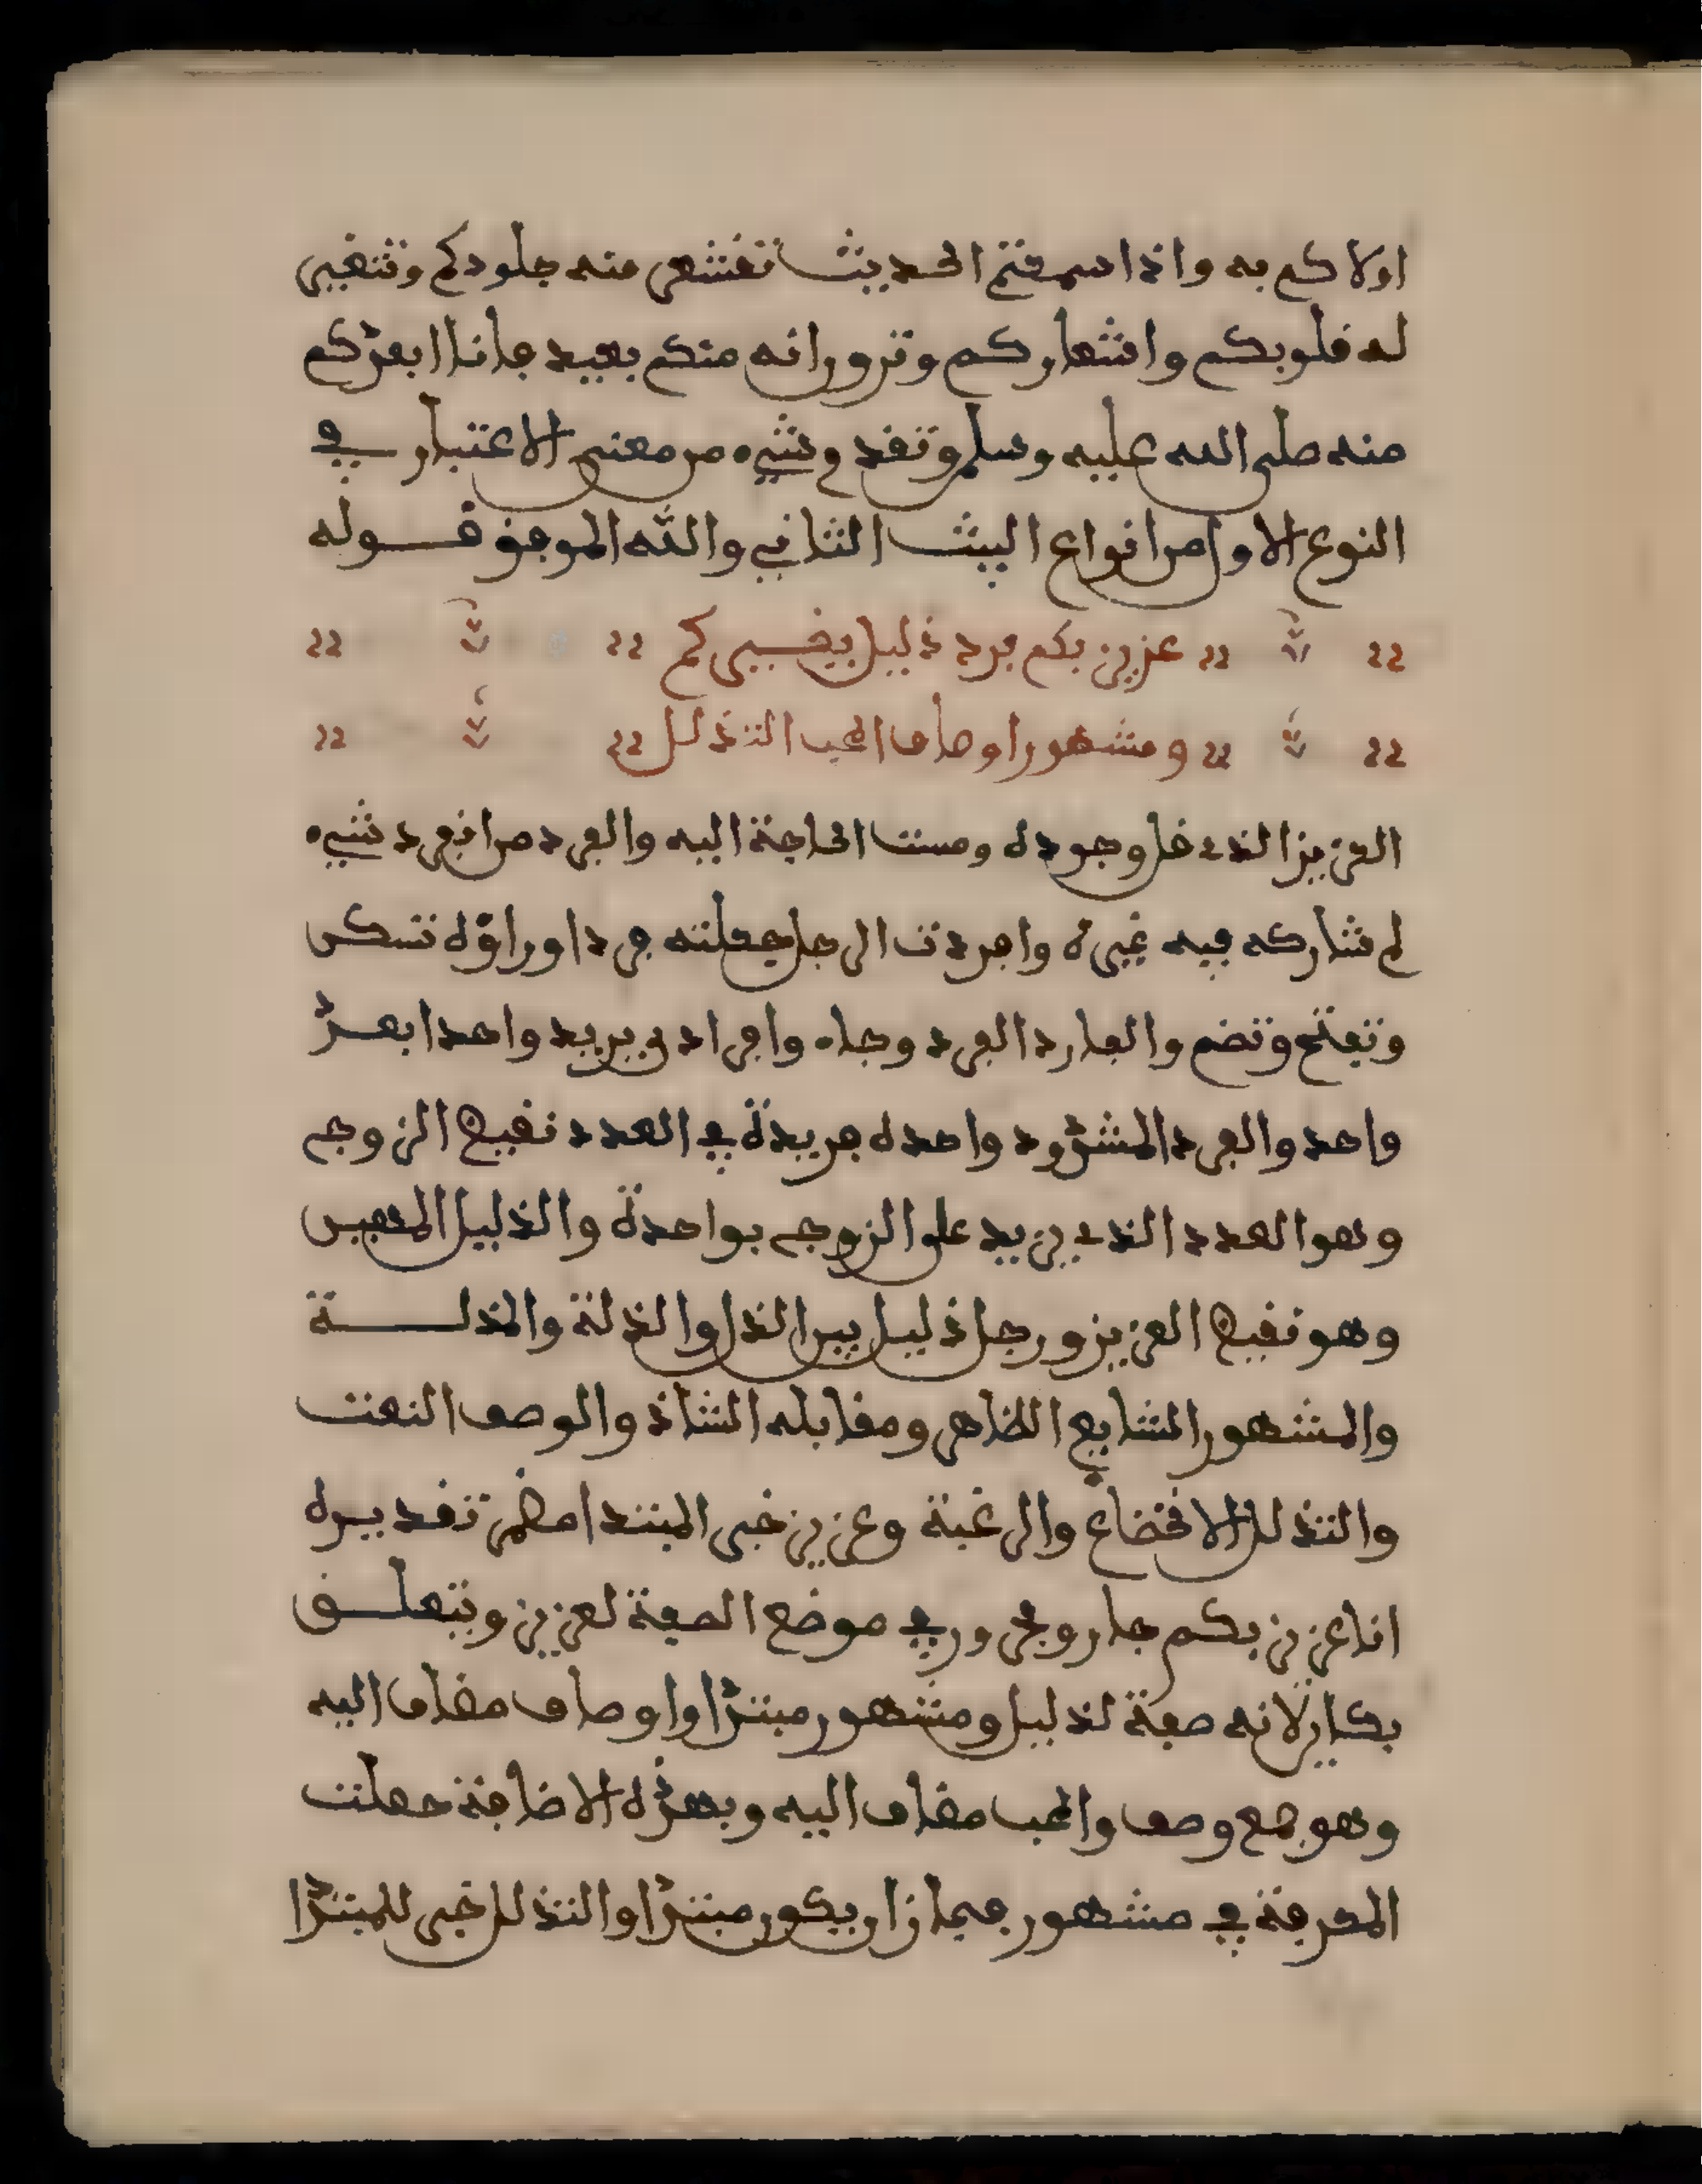 اولاكم به واذا سمعتم الحديث تقشعر منه جلودكم وتتغير
له قلوبكم واشعاركم وترون انه منكم بعيد فانا ابعدكم
منه صلى الله عليه وسلم وتقدم شيء من معنى الاعتبار في
النوع الاول من انواع البيت الثاني والله الموفق قوله
عزيز بكم فرد ذليل بغيركم
ومشهور اوصاف المحب التذلل
العزيز الذي قل وجوده ومست الحاجة اليه والفرد من انفرد بشيء
لم يشاركه فيه غيره وافردت الرجل جعلته فردا وراؤه تسكن
وتفتح وتضم والفارد الفرد وجاء وافراد يريد واحدا بعد
واحد والفرد المشرود واحده فريدة في العدد نقيض الزوج
وهو العدد الذي يزيد على الزوج بواحدة والذليل المهين
وهو نقيض العزيز ورجل ذليل بين الذل والذلة والمذلة
والمشهور الشايع الظاهر ومقابله الشاذ والوصف النعت
والتذلل الاخضاع والرغبة وعزيز خبر المبتدا مضمر تقديره
انا عزيز بكم جار ومجرور في موضع الصفة لعزيز ويتعلق
بكاين لانه صفة لذليل ومشهور مبتدا واوصاف مضاف اليه
وهو جمع وصف والمحب مضاف اليه وبهذه الاضافة حصلت
المعرفة في مشهور فجاز ان يكون مبتدا والتذلل خبر للمبتدا